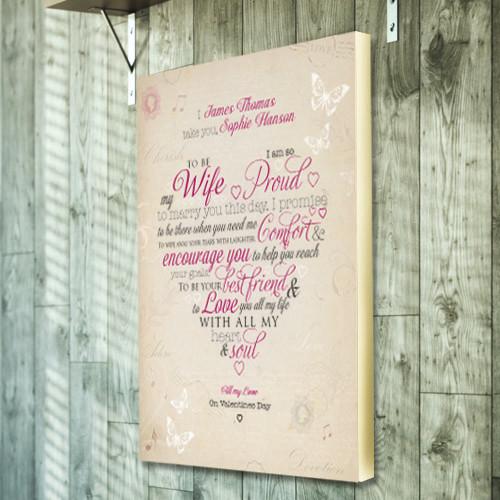 I James Thomas
take you, Sophie Hanson
TO BE I am so
my Wife Proud
to marry you this day. I promise
to be there when you need me Comfort &
TO WIPE AWAY YOUR TEARS WITH LAUGHTER,
encourage you to help you reach
your goals.
TO BE YOUR best friend &
to Love you all my life
WITH ALL MY
heart
& soul
All my Love
On Valentines Day
Devotion